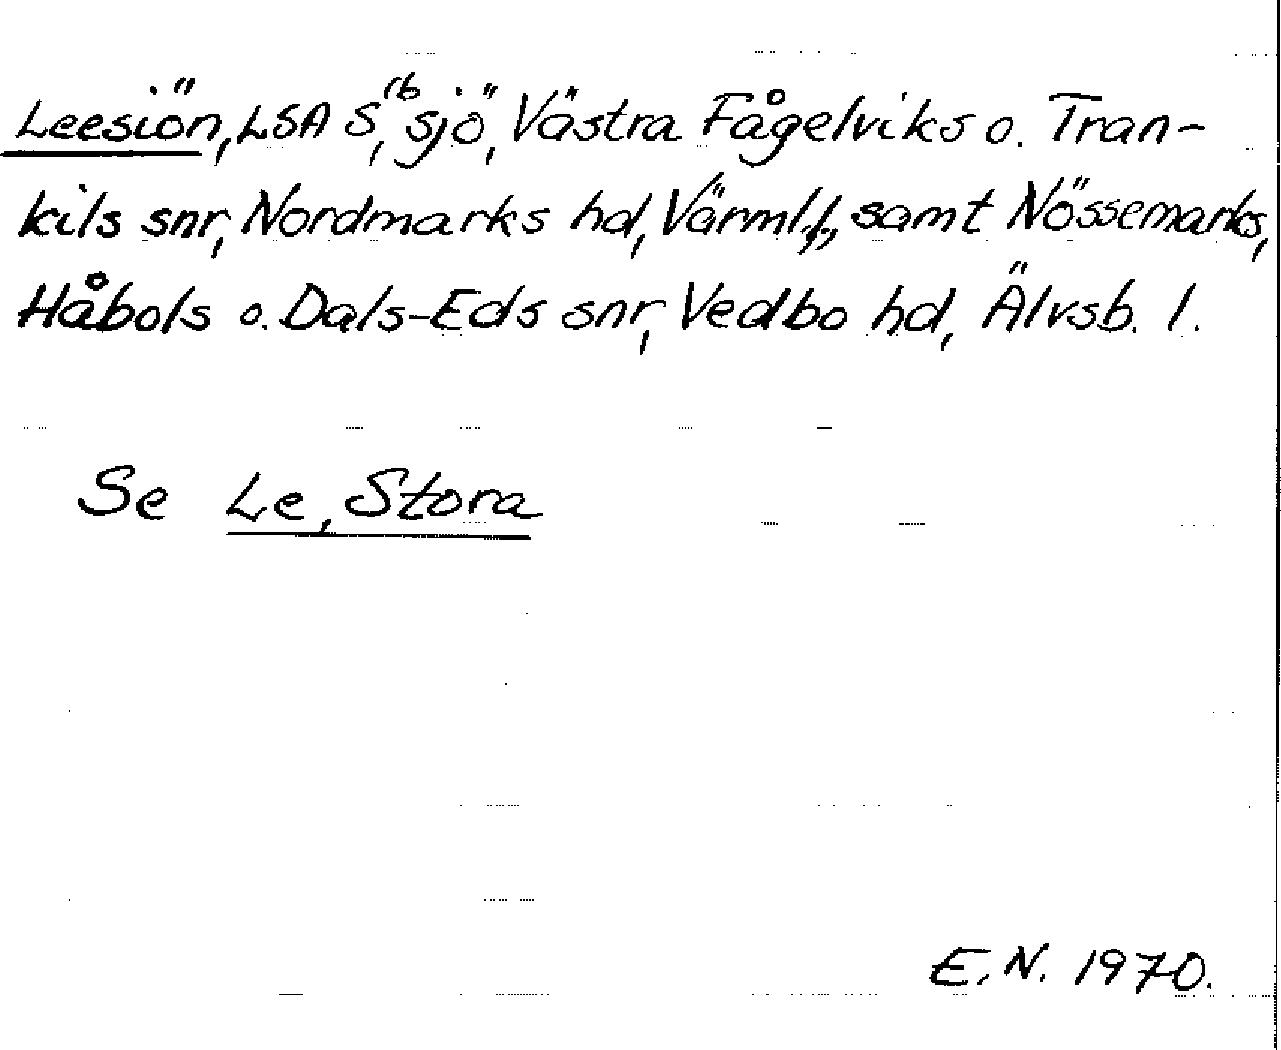 Leesiön, LSA S 1b, sjö, Västra Fågelviks o. Tran-
kils snr, Nordmarks hd, Värml. l., samt Nössemarks,
Håbols o. Dals-Eds snr, Vedbo hd, Älvsb. l.
Se Le, Stora
E.N. 1970.